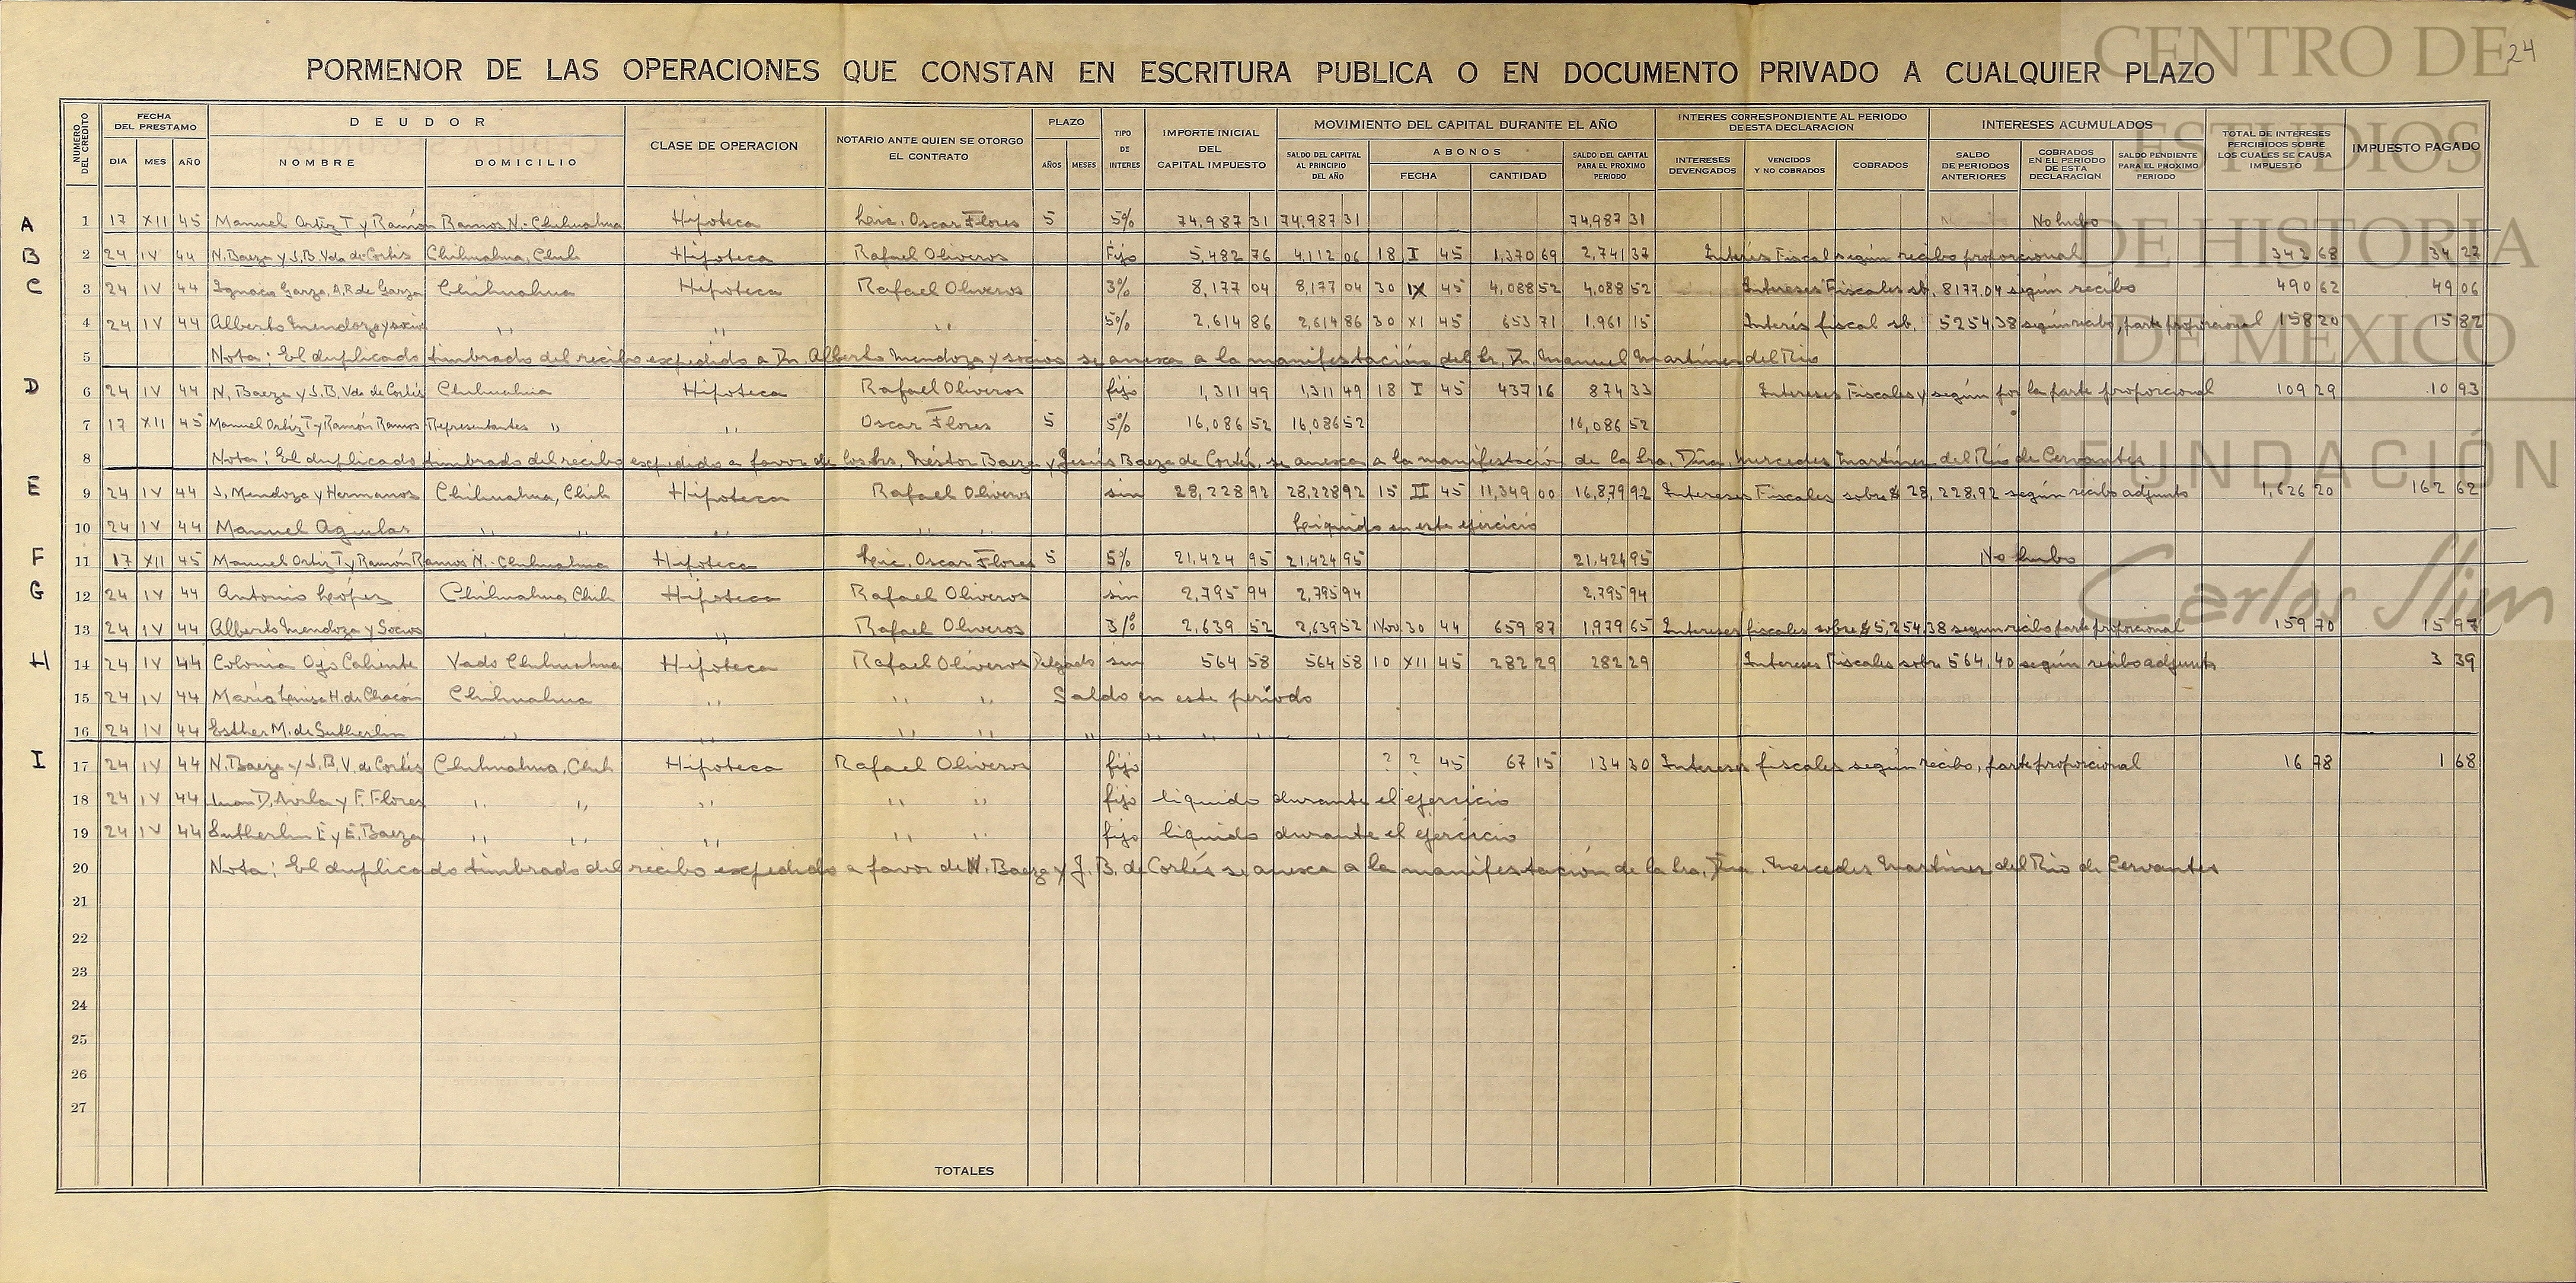 24
PORMENOR DE LAS OPERACIONES QUE CONSTAN EN ESCRITURA PUBLICA O EN DOCUMENTO PRIVADO A CUALQUIER PLAZO
NUMERO DEL CREDITO
FECHA DEL PRESTAMO
DIA MES AÑO
DEUDOR
NOMBRE DOMICILIO
CLASE DE OPERACION
NOTARIO ANTE QUIEN SE OTORGO EL CONTRATO
PLAZO
AÑOS MESES
TIPO DE INTERES
IMPORTE INICIAL DEL CAPITAL IMPUESTO
MOVIMIENTO DEL CAPITAL DURANTE EL AÑO
SALDO DEL CAPITAL AL PRINCIPIO DEL AÑO
ABONOS
FECHA CANTIDAD
SALDO DEL CAPITAL PARA EL PROXIMO PERIODO
INTERES CORRESPONDIENTE AL PERIODO DE ESTA DECLARACION
INTERESES DEVENGADOS
VENCIDOS Y NO COBRADOS
COBRADOS
INTERESES ACUMULADOS
SALDO DE PERIODOS ANTERIORES
COBRADOS EN EL PERIODO DE ESTA DECLARACION
SALDO PENDIENTE PARA EL PROXIMO PERIODO
TOTAL DE INTERESES PERCIBIDOS SOBRE LOS CUALES SE CAUSA IMPUESTO
IMPUESTO PAGADO
A 1 17 XII 45 Manuel Ortiz T y Ramón Ramos N.- Chihuahua Hipoteca Lic. Oscar Flores 5 5% 74,987 31 74,987 31 74,987 31 No hubo
B 2 24 IV 44 N. Baeza y J.B. Vda de Cortés Chihuahua, Chih Hipoteca Rafael Oliveros Fijo 5,482 76 4,112 06 18 I 45 1,370 69 2,741 37 Interés Fiscal según recibo proporcional 342 68 34 27
C 3 24 IV 44 Ignacio Garza, A.R. de Garza Chihuahua Hipoteca Rafael Oliveros 3% 8,177 04 8,177 04 30 IX 45 4,088 52 4,088 52 Intereses Fiscales sb. 8177.04 según recibo 490 62 49 06
4 24 IV 44 Alberto Mendoza y socios " " " 5% 2,614 86 2,614 86 30 XI 45 653 71 1,961 15 Interés fiscal sb. 5254.38 según recibo, parte proporcional 158 20 15 82
5 Nota: El duplicado timbrado del recibo expedido a Dn. Alberto Mendoza y socios se anexa a la manifestación del Sr. Dn. Manuel Martínez del Río
D 6 24 IV 44 N. Baeza y J.B. Vda de Cortés Chihuahua Hipoteca Rafael Oliveros fijo 1,311 49 1,311 49 18 I 45 437 16 874 33 Intereses Fiscales y según por la parte proporcional 109 29 10 93
7 17 XII 45 Manuel Ortiz T y Ramón Ramos Representantes " " Oscar Flores 5 5% 16,086 52 16,086 52 16,086 52
8 Nota: El duplicado timbrado del recibo expedido a favor de los Srs. Néstor Baeza y Jesús Baeza de Cortés, se anexa a la manifestación de la Sra. Dña. Mercedes Martínez del Río de Cervantes
E 9 24 IV 44 J. Mendoza y Hermanos Chihuahua, Chih Hipoteca Rafael Oliveros sin 28,228 92 28,228 92 15 II 45 11,349 00 16,879 92 Intereses Fiscales sobre $ 28,228.92 según recibo adjunto 1,626 20 162 62
10 24 IV 44 Manuel Aguilar " " " " " Liquido en este ejercicio
F 11 17 XII 45 Manuel Ortiz T y Ramón Ramos N.- Chihuahua Hipoteca Lic. Oscar Flores 5 5% 21,424 95 21,424 95 21,424 95 No hubo
G 12 24 IV 44 Antonio López Chihuahua Chih Hipoteca Rafael Oliveros sin 2,795 94 2,795 94 2,795 94
13 24 IV 44 Alberto Mendoza y Socios " " " Rafael Oliveros 3% 2,639 52 2,639 52 Nov 30 44 659 87 1,979 65 Intereses fiscales sobre $5,254.38 segun recibo parte proporcional 159 70 15 97
H 14 24 IV 44 Colonia Ojo Caliente Vado Chihuahua Hipoteca Rafael Oliveros Delgado sin 564 58 564 58 10 XII 45 282 29 282 29 Intereses Fiscales sobre 564.40 según recibo adjunto 3 39
15 24 IV 44 María Luisa H. de Chacón Chihuahua " " " Saldo en este período
16 24 IV 44 Esther M. de Sutherlin " " " " " " " "
I 17 24 IV 44 N. Baeza y J. B. V. de Cortés Chihuahua, Chih Hipoteca Rafael Oliveros fijo ? ? 45 67 15 134 30 Intereses fiscales según recibo, parte proporcional 16 78 1 68
18 24 IV 44 Juan D. Avila y F. Flores " " " " " fijo liquido durante el ejercicio
19 24 IV 44 Sutherlin E y E. Baeza " " " " " fijo liquido durante el ejercicio
20 Nota: El duplicado timbrado del recibo expedido a favor de N. Baeza y J. B. de Cortés se anexa a la manifestación de la Sra. Dña. Mercedes Martínez del Río de Cervantes
21
22
23
24
25
26
27
TOTALES
CENTRO DE
ESTUDIOS
DE HISTORIA
DE MEXICO
FUNDACIÓN
Carlos Slim